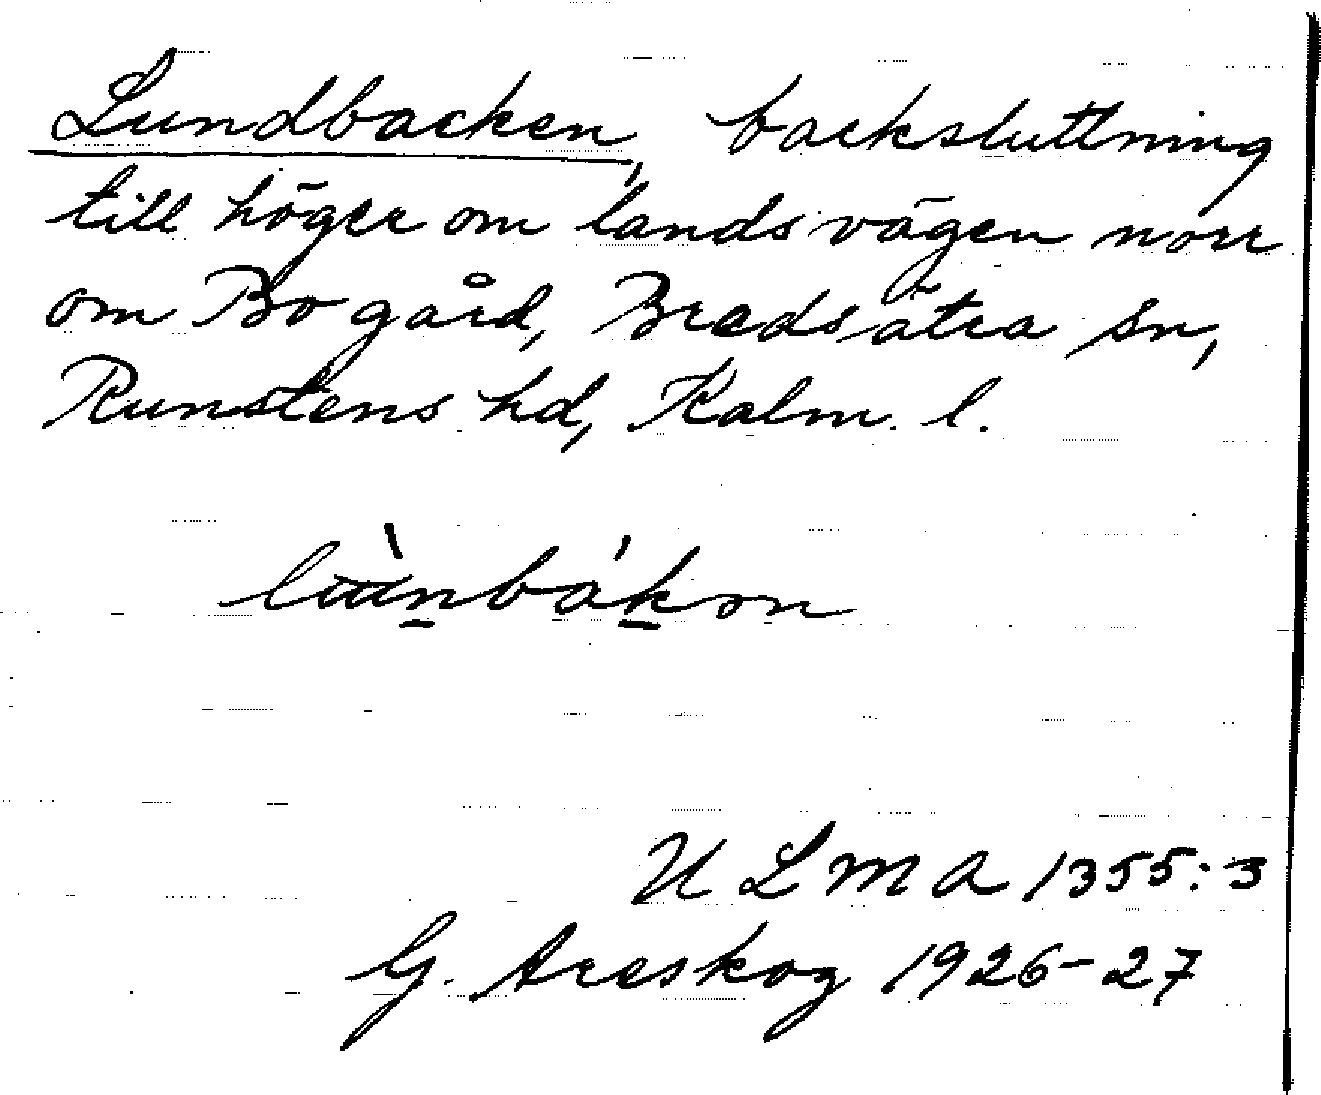 Lundbacken, backsluttning
till höger om landsvägen norr
om Bo gård, Bredsätra sn,
Runstens hd, Kalm. l.
ULMA 1355:3
G. Areskog 1926-27